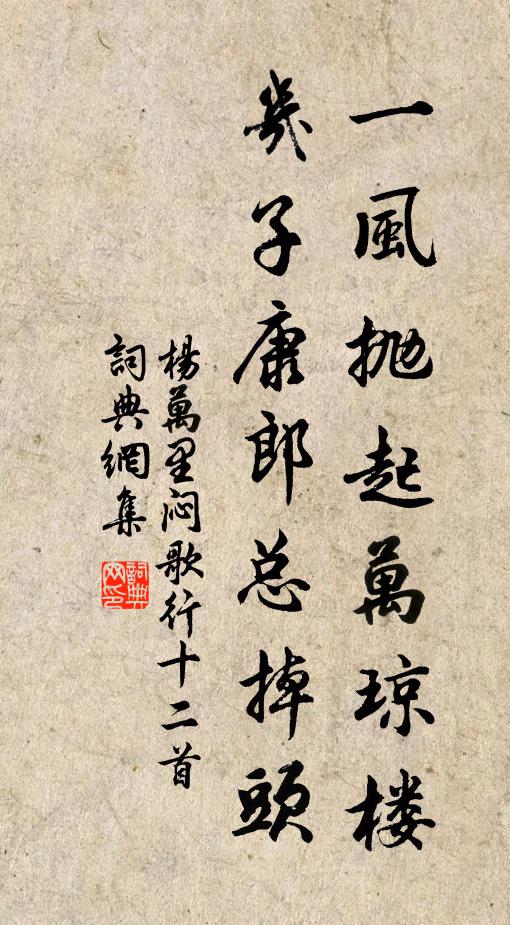 一風抛起萬琼楼
幾子康郎总掉頭
楊萬里闷歌行十二首
詞典網集
詞典网印